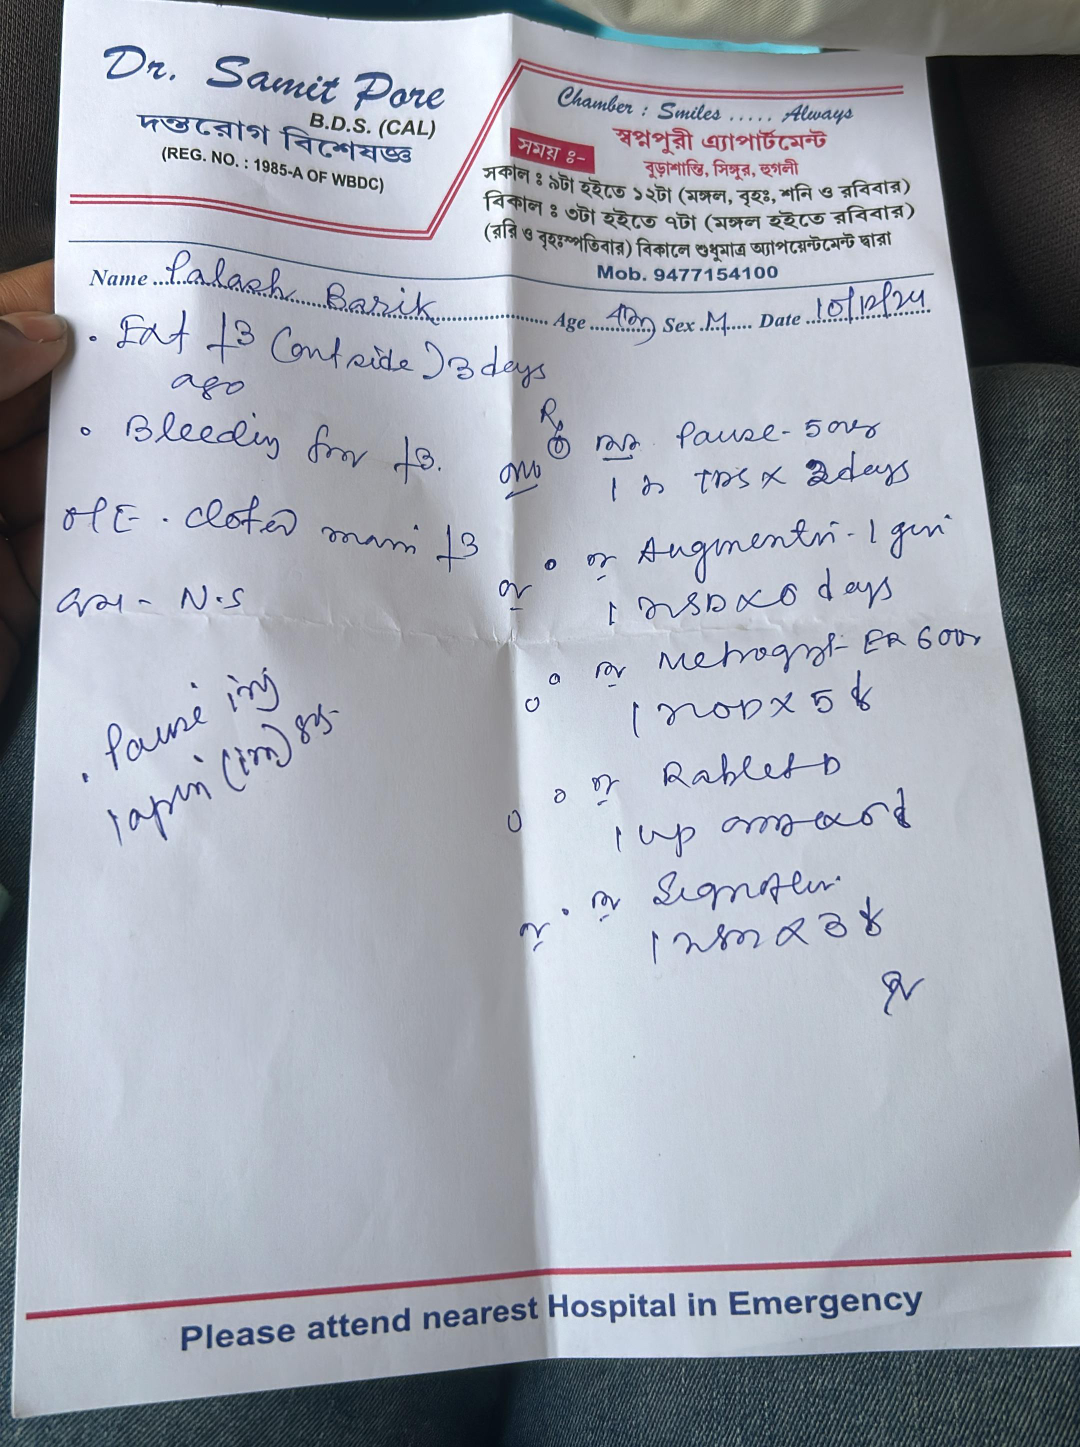 Dr. Samit Pore
B.D.S. (CAL)
দন্তরোগ বিশেষজ্ঞ
(REG. NO. : 1985-A OF WBDC)
Chamber : Smiles ..... Always
স্বপ্নপুরী এ্যাপার্টমেন্ট
সময় ঃ-
বুড়াশান্তি, সিঙ্গুর, হুগলী
সকাল ঃ ৯টা হইতে ১২টা (মঙ্গল, বৃহঃ, শনি ও রবিবার)
বিকাল ঃ ৩টা হইতে ৭টা (মঙ্গল হইতে রবিবার)
(রবি ও বৃহঃস্পতিবার) বিকালে শুধুমাত্র অ্যাপয়েন্টমেন্ট দ্বারা
Mob. 9477154100
Name Palash Barik Age Sex M Date 10/12/24
Ext (outside) 3 days
ago
Bleeding from
O/E -
N.S
Pause inj
(im)
Rx
Pause - 500
1 TDS x days
Augmentin - 1 gm
1 BD x days
Metrogyl - ER 600
1 OD x 5 d
Rablet D
1 cap
Signoflam
1 x 3 d
Please attend nearest Hospital in Emergency